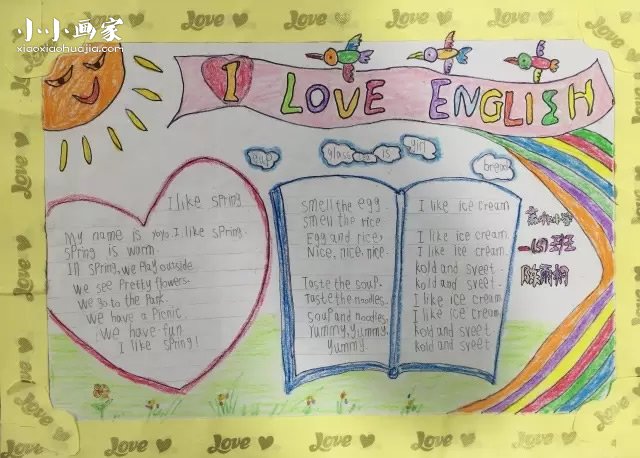 小小画家
xiaoxiaohuajia.com
I LOVE ENGLISH
cup
glass
is
girl
bread
I like spring
My name is yoyo. I like spring.
Spring is worm.
In spring, we play outside
we see pretty flowers.
we go to the park.
we have a picnic.
we have fun
I like spring!
smell the egg.
smell the rice
Egg and rice,
Nice, nice, nice.
Taste the soup.
Taste the noodles.
soup and noodles
Yummy, yummy,
Yummy.
I like ice cream
I like ice cream.
I like ice cream.
kold and sveet.
kold and sveet.
I like ice cream
I like ice cream
kold and sveet
kold and sveet
小学
一(4)班
Love
Love
Love
Love
Love
Love
Love
Love
Love
Love
Love